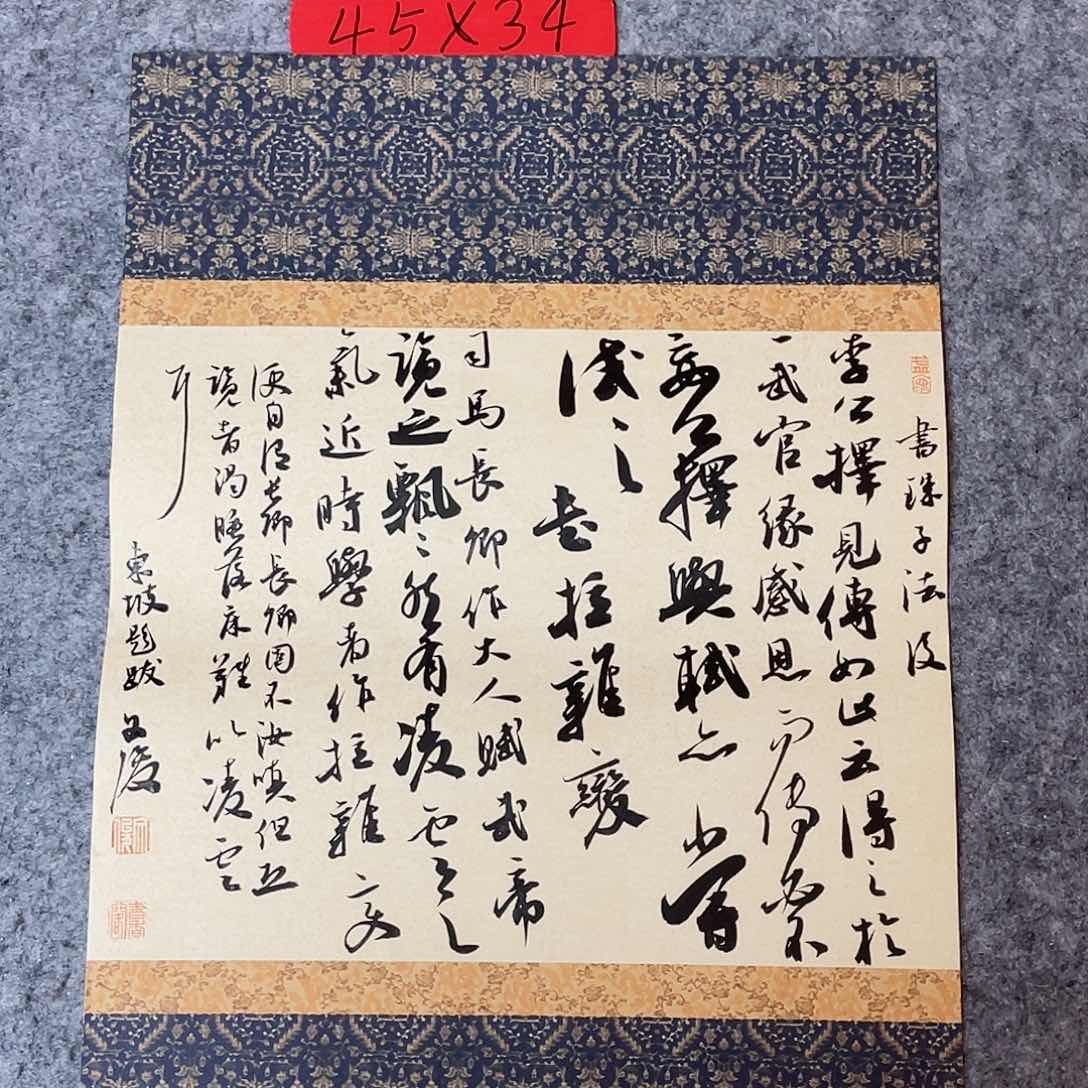 45X34
書珠子法後
李公擇見傳如此云得之於
一武官緣感恩而傳必不
妄公擇與軾亦嘗
試之
書拉雜變
司馬長卿作大人賦武帝
覽之飄飄然有凌雲之
氣近時學者作拉雜變
便自謂長卿長卿固不汝嗔但恐
覽者渴睡落床難以凌雲
耳
東坡題跋